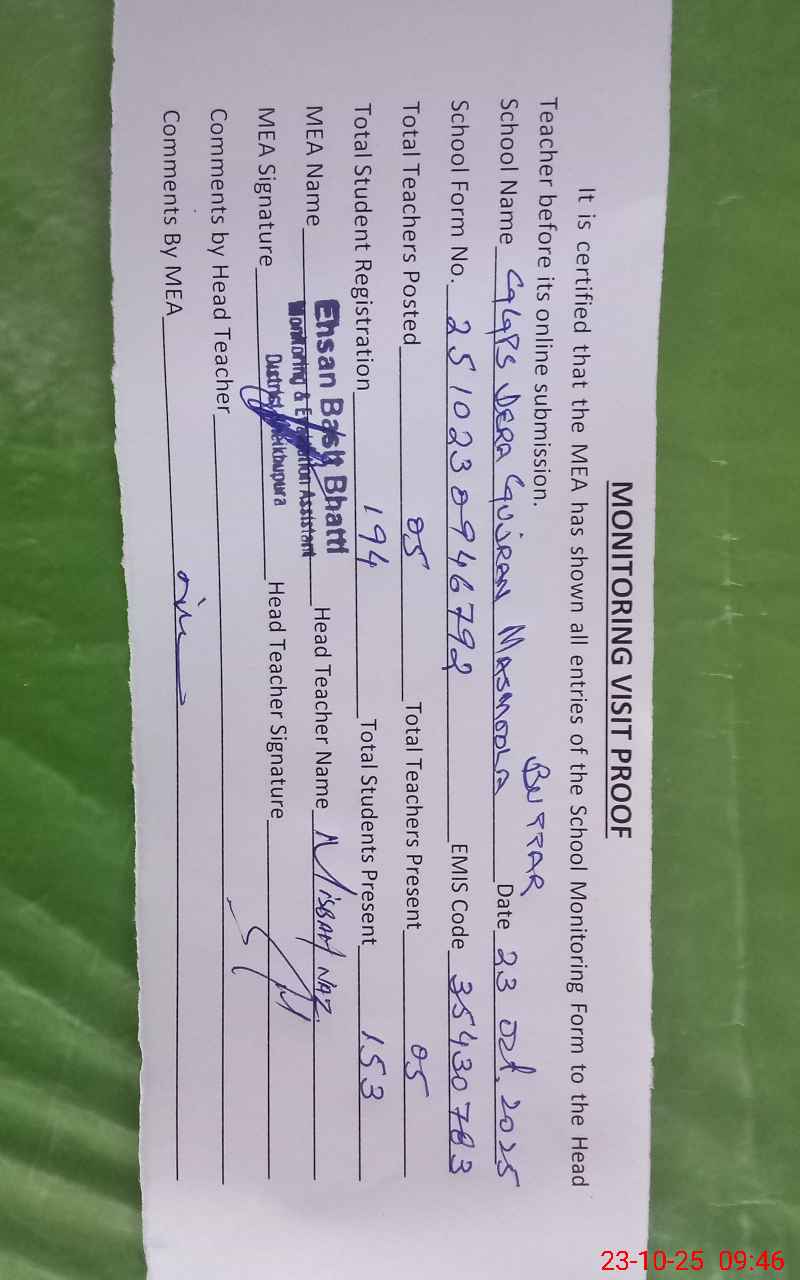 MONITORING VISIT PROOF
It is certified that the MEA has shown all entries of the School Monitoring Form to the Head
Teacher before its online submission.
BUTTAR
School Name GGPS DERA GUJRAN MASMOOLA Date 23 Oct, 2025
School Form No. 251023 0946792 EMIS Code 35430783
Total Teachers Posted 05 Total Teachers Present 05
Total Student Registration 194 Total Students Present 153
MEA Name Ehsan Bash Bhatti Head Teacher Name Misbah Naz
Monitoring & Evaluation Assistant
District Sheikhupura
MEA Signature Head Teacher Signature
Comments by Head Teacher
Comments By MEA
23-10-25 09:46